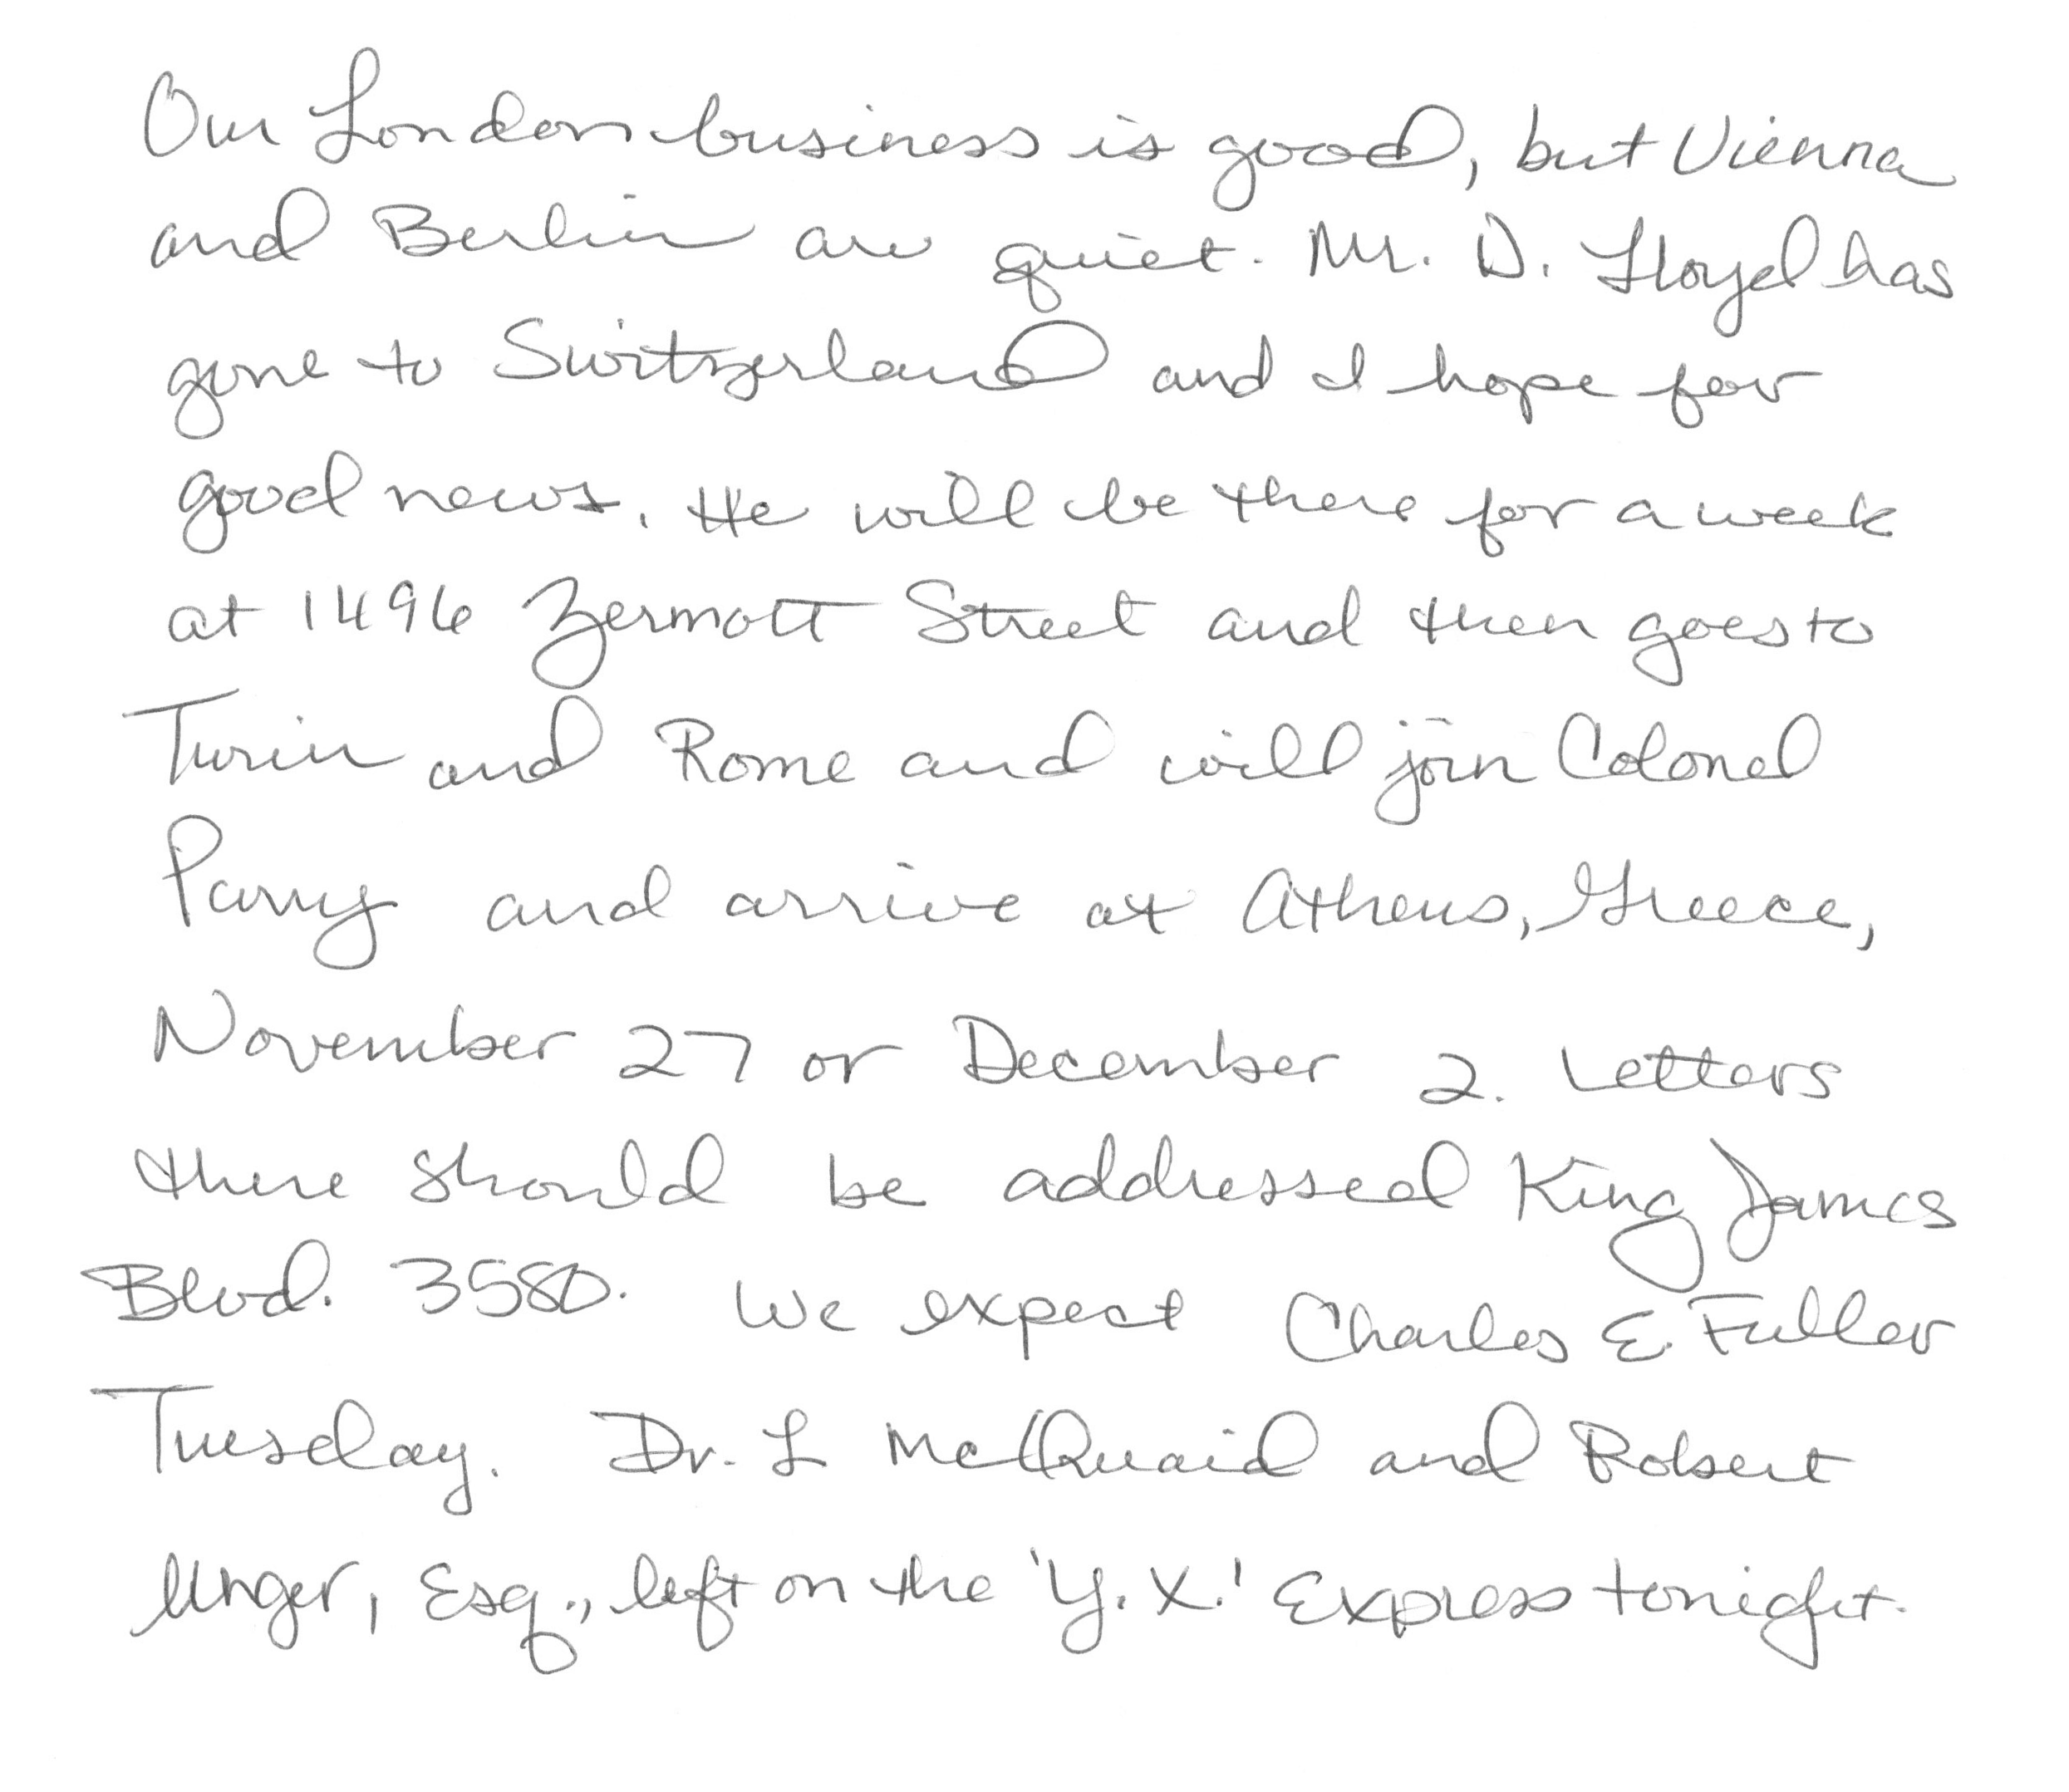 Our London business is good, but Vienna
and Berlin are quiet. Mr. D. Lloyd has
gone to Switzerland and I hope for
good news. He will be there for a week
at 1496 Zermott Street and then goes to
Turin and Rome and will join Colonel
Parry and arrive at Athens, Greece,
November 27 or December 2. Letters
there should be addressed King James
Blvd. 3580. We expect Charles E. Fuller
Tuesday. Dr. L McQuaid and Robert
Unger, Esq., left on the 'Y.X.' Express tonight.